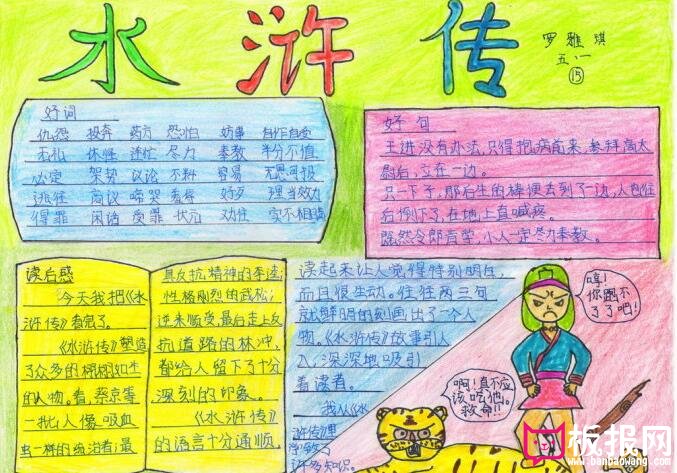 水 浒 传
罗雅琪
五.一
15
好词
仇怨 投奔 药方 恐怕 妨事 自作自受
无礼 休怪 连忙 尽力 奉教 半分不值
必定 架势 议论 不料 容易 无恩可报
逃往 商议 啼哭 羞辱 好歹 理当效力
得罪 闲话 受罪 状元 劝住 实不相瞒
好 句
王进没有办法,只得抱病前来,参拜高太
尉后,立在一边。
只一下子,那后生的棒便丢到了一边,人也往
后倒下了,在地上直喊疼。
既然令郎肯学,小人一定尽力奉教。
读后感
今天我把《水
浒传》看完了。
《水浒传》塑造
了众多的栩栩如生
的人物。看,蔡京等
一批人像吸血
虫一样的统治者;最
具反抗精神的李逵;
性格刚烈的武松;
逆来顺受,最后走上反
抗道路的林冲,
都给人留下了十分
深刻的印象。
《水浒传》
的语言十分通顺,
读起来让人觉得特别明白,
而且很生动。往往两三句
就鲜明的刻画出了一个人
物。《水浒传》故事引人
入,深深地吸引
着读者。
我从《水
浒传》里
学会了
许多知识。
哼!
你跑不
了了吧!
啊!真不应
该吃他。
救命!!
板报网
www.banbaowang.com